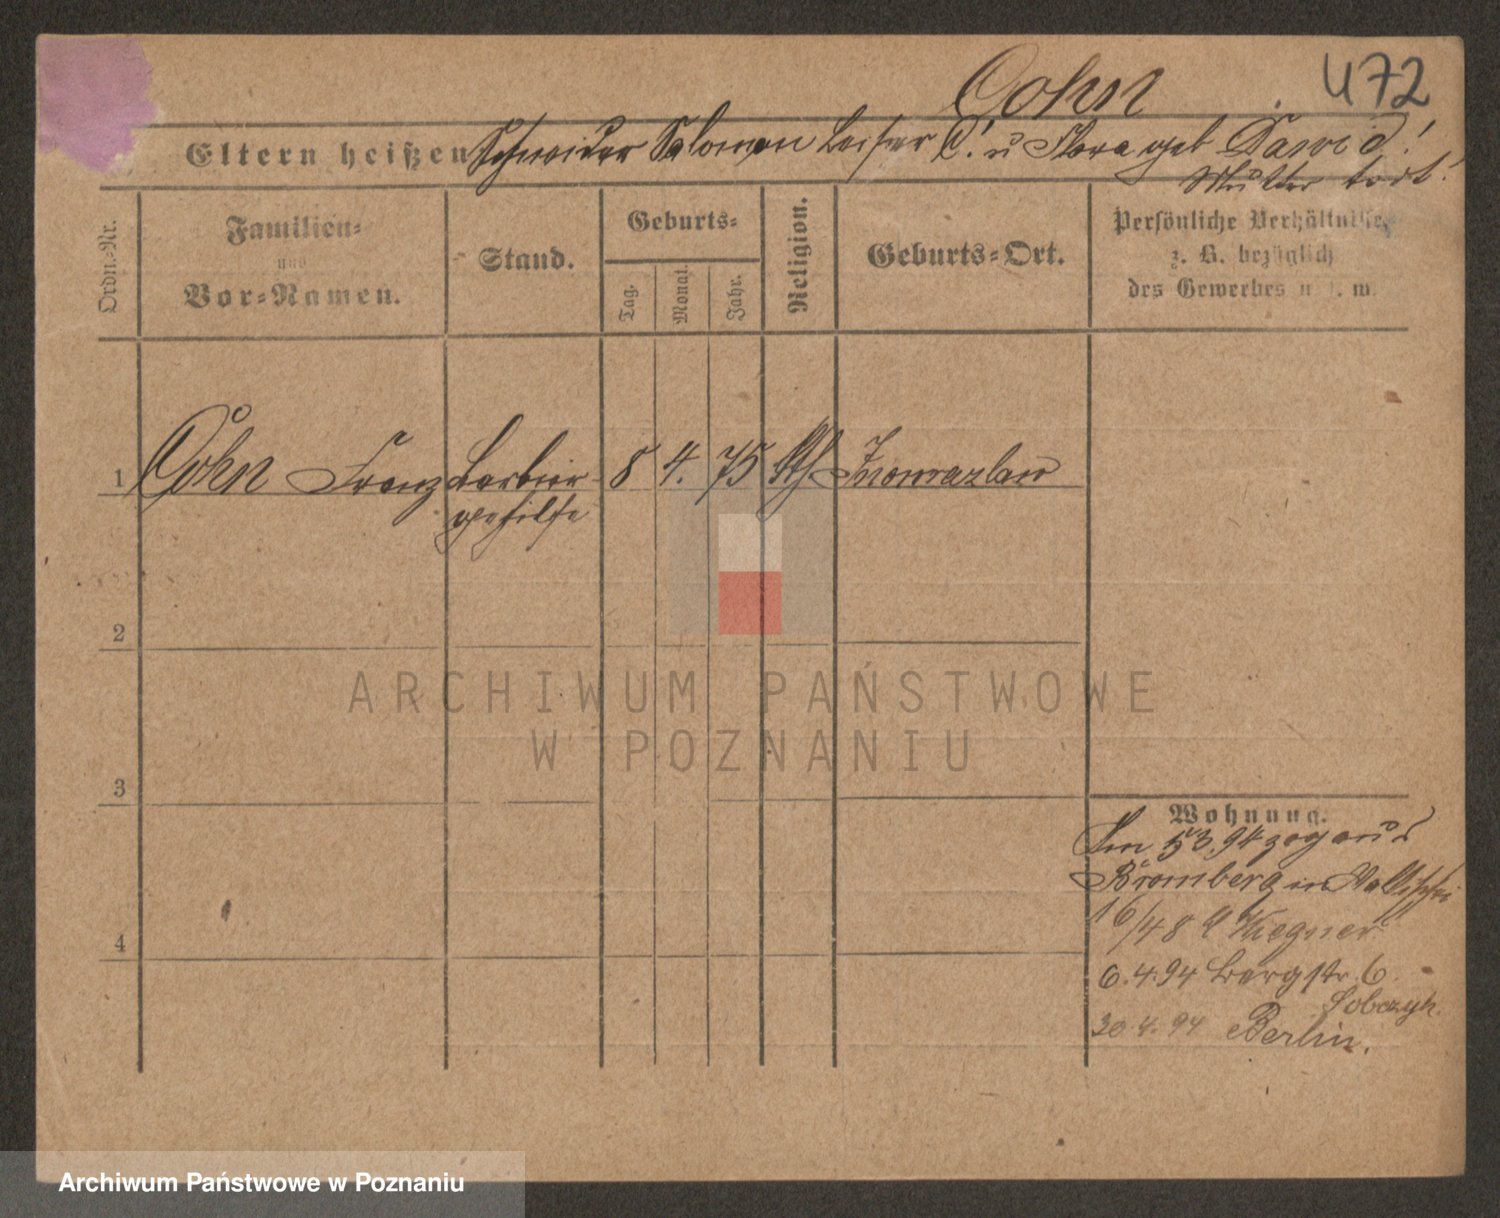 Cohn 472
Eltern heißen Schneider Salomon Leiser C. u Flora geb David!
Mutter todt!
Ordn.-Nr.
Familien-
und
Vor-Namen.
Stand.
Geburts-
Tag.
Monat.
Jahr.
Religion.
Geburts-Ort.
Persönliche Verhältnisse,
z. B. bezüglich
des Gewerbes u. s. w.
1 Cohn Franz Barbier- 8 4. 75 Inowrazlaw
gehilfe
2
3
4
Wohnung.
Am 5 3. 94 zog aus
Bromberg in Wallischei
16/48 Wegner
6. 4. 94 Bergstr. 6
Sobczyk.
20. 4. 94 Berlin.
ARCHIWUM PAŃSTWOWE
W POZNANIU
Archiwum Państwowe w Poznaniu